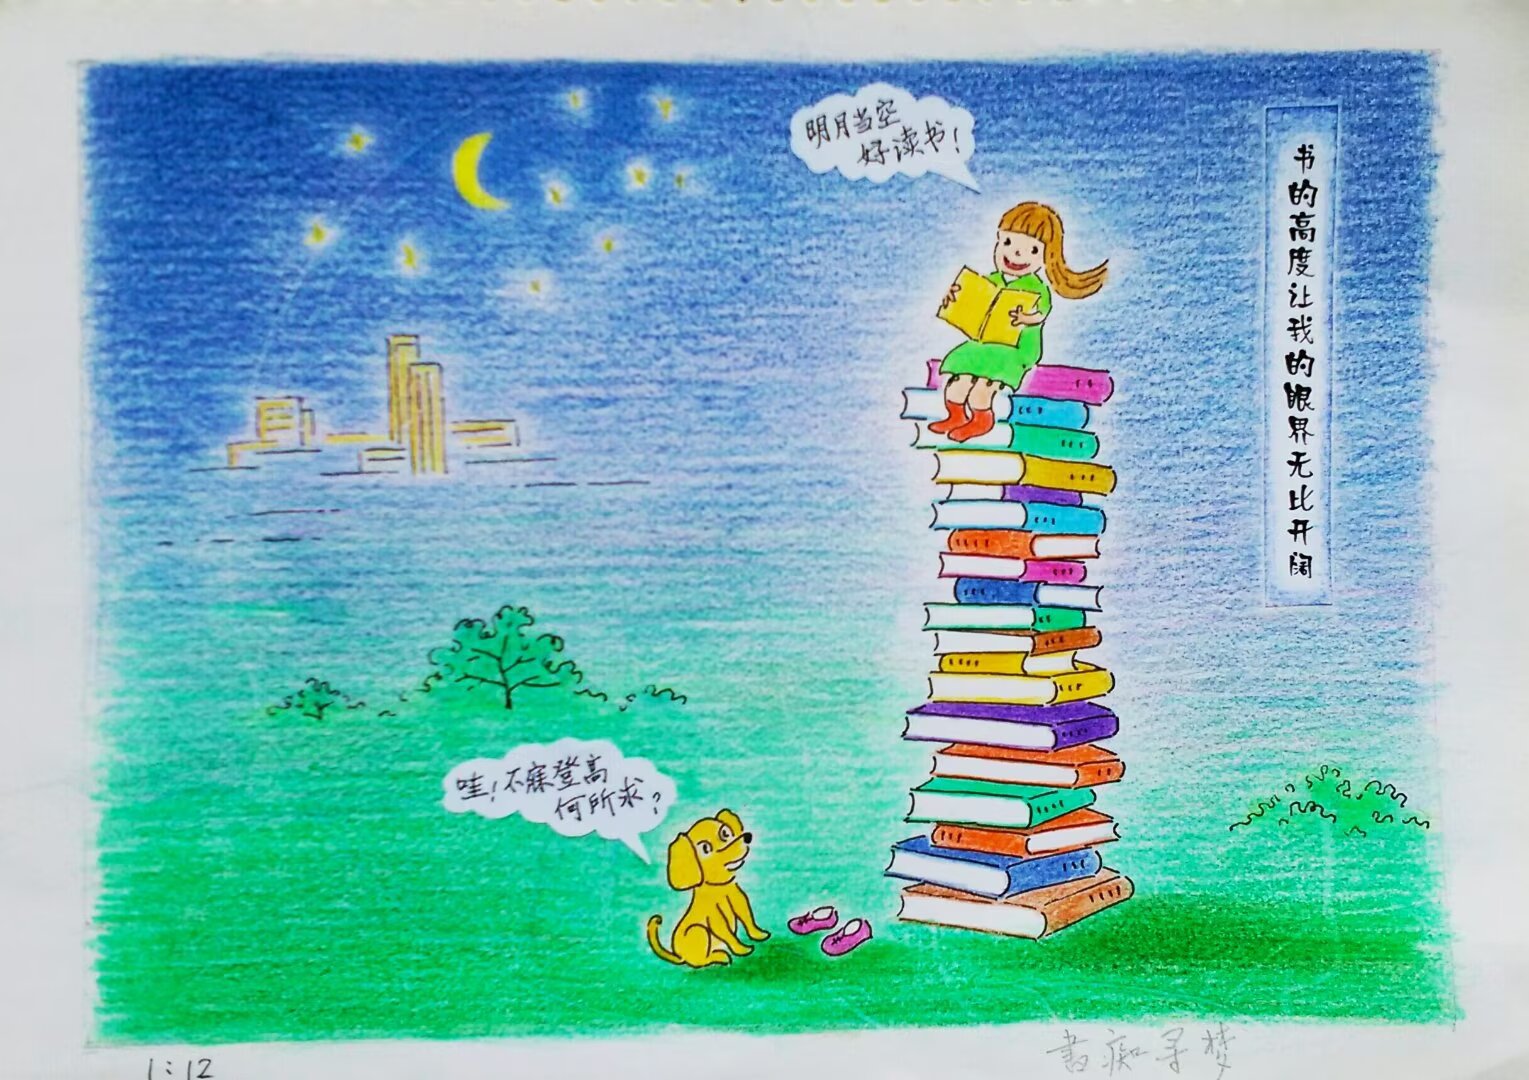 明月当空
好读书！
书的高度让我的眼界无比开阔
哇！不寐登高
何所求？
1:12
書痴寻梦